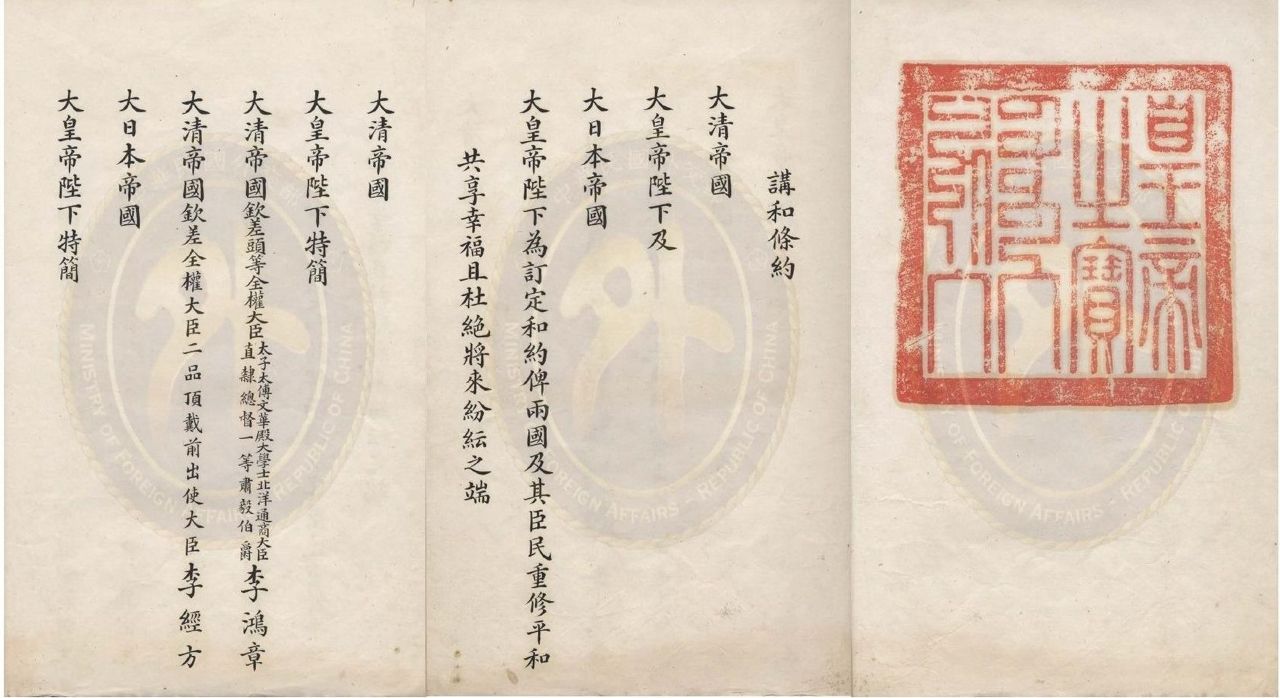 皇帝
之寶
FOREIGN AFFAIRS REPUBLIC
講和條約
大清帝國
大皇帝陛下及
大日本帝國
大皇帝陛下為訂定和約俾兩國及其臣民重修平和
共享幸福且杜絕將來紛紜之端
FOREIGN AFFAIRS REPUBLIC OF CHINA
大清帝國
大皇帝陛下特簡
大清帝國欽差頭等全權大臣太子太傅文華殿大學士北洋通商大臣直隸總督一等肅毅伯爵李鴻章
大清帝國欽差全權大臣二品頂戴前出使大臣李經方
大日本帝國
大皇帝陛下特簡
MINISTRY OF FOREIGN AFFAIRS REPUBLIC OF CHINA